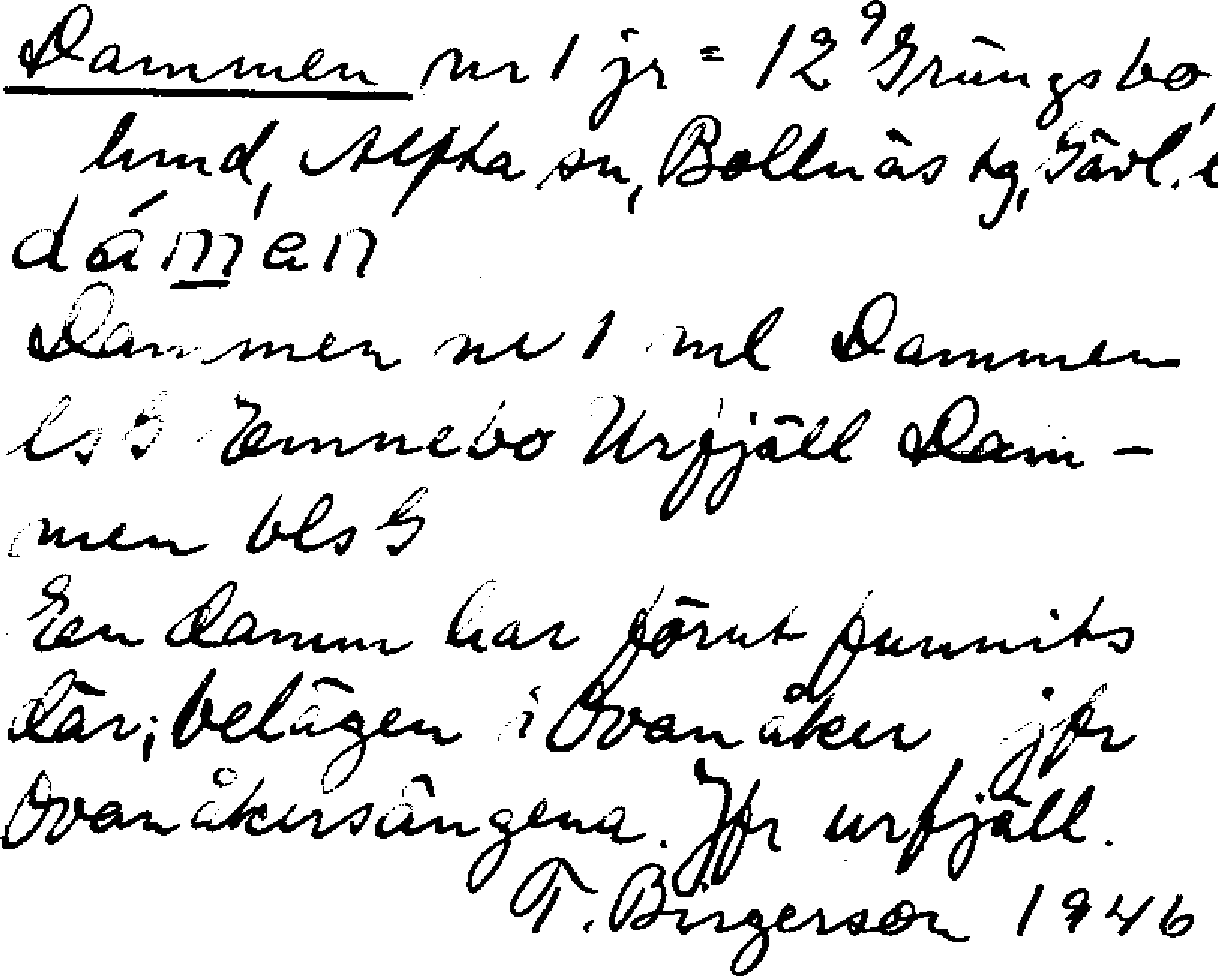 Dammen nr 1 jr = 12⁹ Grängsbo,
lund, Alfta sn, Bollnäs tg, Gävl. l
dámen
Dammen nr 1 ml Dammen
ls G Emnebo Urfjäll Dam-
men bls G
Een damm har förut funnits
där; belägen i Ovanåker jfr
Ovanåkersängena. Jfr urfjäll.
T. Birgerson 1946